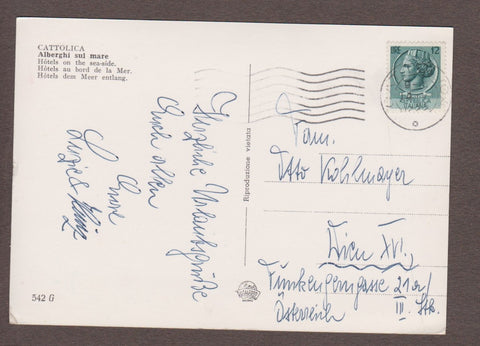 CATTOLICA
Alberghi sul mare
Hôtels on the sea-side.
Hôtels au bord de la Mer.
Hôtels dem Meer entlang.
LIRE 12
Herzliche Urlaubsgrüße
Euch allen
Eure
Riproduzione vietata
Fam.
Otto Kohlmayer
Wien XVI.
21a/
III. Stk.
Österreich
542 G